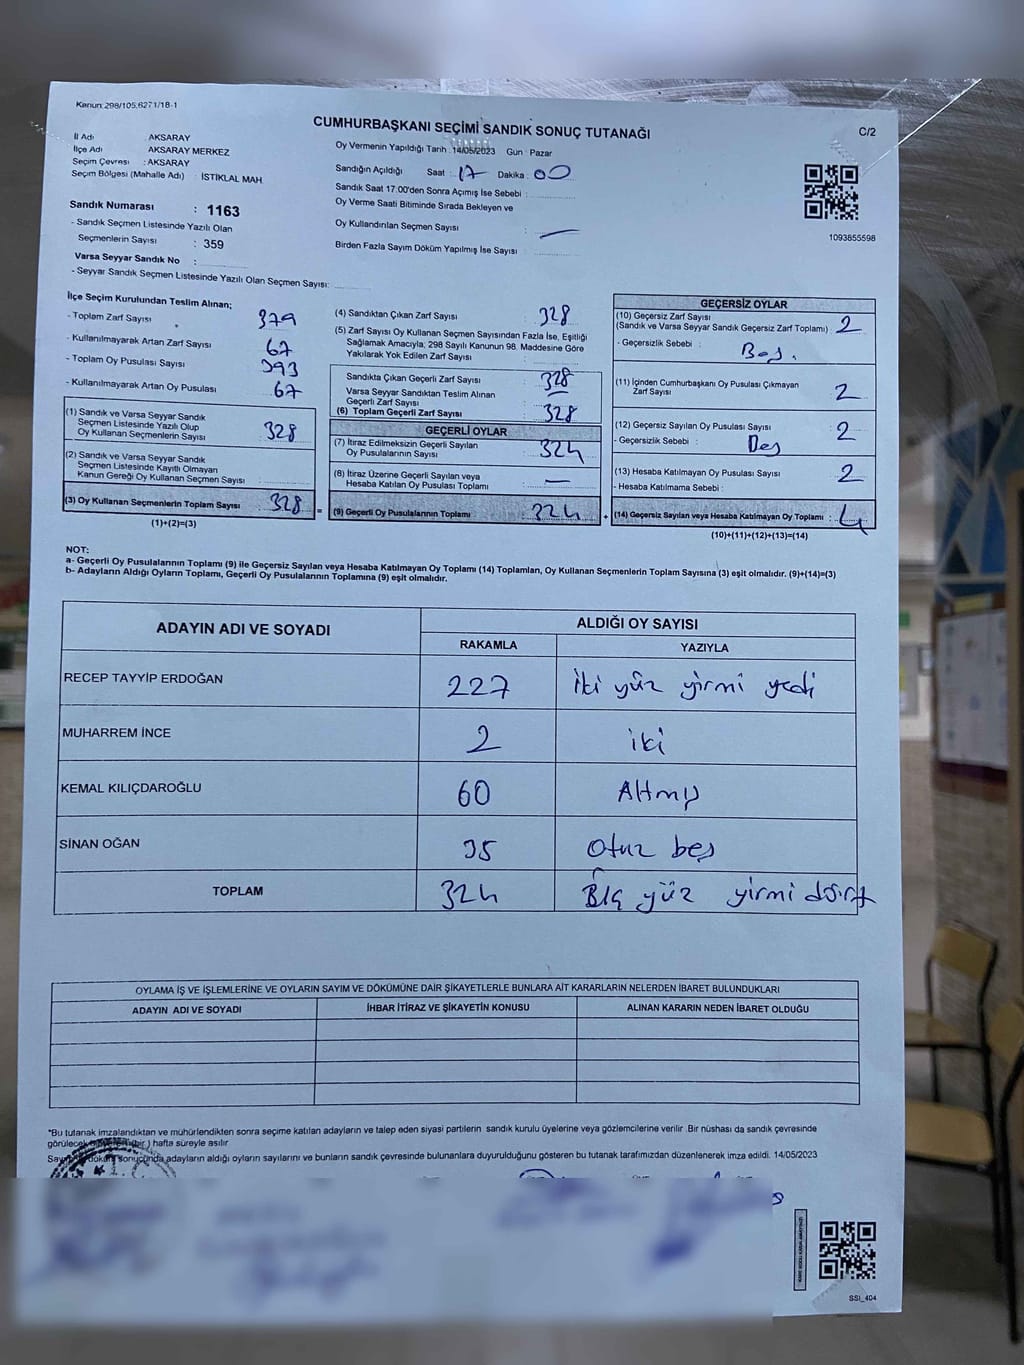 Kanun:298/105,6271/18-1
CUMHURBAŞKANI SEÇİMİ SANDIK SONUÇ TUTANAĞI
C/2
İl Adı : AKSARAY
İlçe Adı AKSARAY MERKEZ
Seçim Çevresi : AKSARAY
Seçim Bölgesi (Mahalle Adı) : İSTİKLAL MAH.
Sandık Numarası : 1163
- Sandık Seçmen Listesinde Yazılı Olan
Seçmenlerin Sayısı : 359
Varsa Seyyar Sandık No :
- Seyyar Sandık Seçmen Listesinde Yazılı Olan Seçmen Sayısı:
Oy Vermenin Yapıldığı Tarih :14/05/2023 Gün : Pazar
Sandığın Açıldığı Saat : 17 Dakika : 00
Sandık Saat 17.00'den Sonra Açımış İse Sebebi :
Oy Verme Saati Bitiminde Sırada Bekleyen ve
Oy Kullandırılan Seçmen Sayısı : —
Birden Fazla Sayım Döküm Yapılmış İse Sayısı :
1093855598
İlçe Seçim Kurulundan Teslim Alınan;
- Toplam Zarf Sayısı 379
- Kullanılmayarak Artan Zarf Sayısı : 67
- Toplam Oy Pusulası Sayısı 393
- Kullanılmayarak Artan Oy Pusulası : 67
(1) Sandık ve Varsa Seyyar Sandık
Seçmen Listesinde Yazılı Olup
Oy Kullanan Seçmenlerin Sayısı : 328
(2) Sandık ve Varsa Seyyar Sandık
Seçmen Listesinde Kayıtlı Olmayan
Kanun Gereği Oy Kullanan Seçmen Sayısı :
(3) Oy Kullanan Seçmenlerin Toplam Sayısı : 328
(1)+(2)=(3)
(4) Sandıktan Çıkan Zarf Sayısı : 328
(5) Zarf Sayısı Oy Kullanan Seçmen Sayısından Fazla İse, Eşitliği
Sağlamak Amacıyla; 298 Sayılı Kanunun 98. Maddesine Göre
Yakılarak Yok Edilen Zarf Sayısı :
Sandıkta Çıkan Geçerli Zarf Sayısı : 328
Varsa Seyyar Sandıktan Teslim Alınan
Geçerli Zarf Sayısı : —
(6) Toplam Geçerli Zarf Sayısı : 328
GEÇERLİ OYLAR
(7) İtiraz Edilmeksizin Geçerli Sayılan
Oy Pusulalarının Sayısı : 324
(8) İtiraz Üzerine Geçerli Sayılan veya
Hesaba Katılan Oy Pusulası Toplamı : —
= (9) Geçerli Oy Pusulalarının Toplamı : 324
GEÇERSİZ OYLAR
(10) Geçersiz Zarf Sayısı
(Sandık ve Varsa Seyyar Sandık Geçersiz Zarf Toplamı) : 2
- Geçersizlik Sebebi :
(11) İçinden Cumhurbaşkanı Oy Pusulası Çıkmayan
Zarf Sayısı : 2
(12) Geçersiz Sayılan Oy Pusulası Sayısı : 2
- Geçersizlik Sebebi :
(13) Hesaba Katılmayan Oy Pusulası Sayısı : 2
- Hesaba Katılmama Sebebi :
+ (14) Geçersiz Sayılan veya Hesaba Katılmayan Oy Toplamı : 4
(10)+(11)+(12)+(13)=(14)
NOT:
a- Geçerli Oy Pusulalarının Toplamı (9) ile Geçersiz Sayılan veya Hesaba Katılmayan Oy Toplamı (14) Toplamları, Oy Kullanan Seçmenlerin Toplam Sayısına (3) eşit olmalıdır. (9)+(14)=(3)
b- Adayların Aldığı Oyların Toplamı, Geçerli Oy Pusulalarının Toplamına (9) eşit olmalıdır.
ADAYIN ADI VE SOYADI
ALDIĞI OY SAYISI
RAKAMLA YAZIYLA
RECEP TAYYİP ERDOĞAN 227 iki yüz yirmi yedi
MUHARREM İNCE 2 iki
KEMAL KILIÇDAROĞLU 60 Altmış
SİNAN OĞAN 35 Otuz beş
TOPLAM 324 yüz yirmi dört
OYLAMA İŞ VE İŞLEMLERİNE VE OYLARIN SAYIM VE DÖKÜMÜNE DAİR ŞİKAYETLERLE BUNLARA AİT KARARLARIN NELERDEN İBARET BULUNDUKLARI
ADAYIN ADI VE SOYADI İHBAR İTİRAZ VE ŞİKAYETİN KONUSU ALINAN KARARIN NEDEN İBARET OLDUĞU
*Bu tutanak imzalandıktan ve mühürlendikten sonra seçime katılan adayların ve talep eden siyasi partilerin sandık kurulu üyelerine veya gözlemcilerine verilir .Bir nüshası da sandık çevresinde
görülecek hafta süreyle asılır
sonucunda adayların aldığı oyların sayılarını ve bunların sandık çevresinde bulunanlara duyurulduğunu gösteren bu tutanak tarafımızdan düzenlenerek imza edildi. 14/05/2023
T.C.
SSI_404